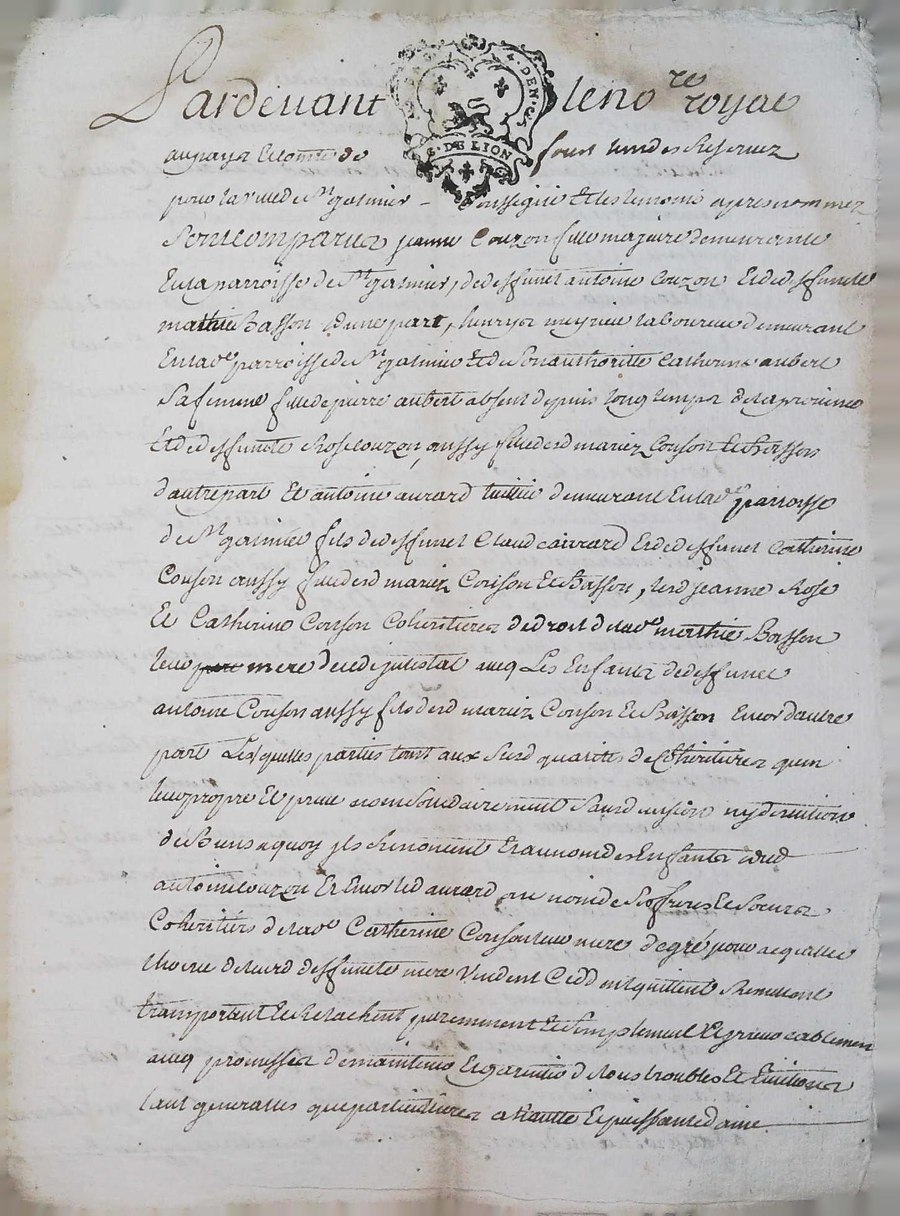 Pardevant le no.re royal
au pays et comté de forest lun des reservez
pour la ville de St galmier soussigné et les temoins apres nommez
Sont comparues jeanne Couzon fille majeure demeurante
En la parroisse de St galmier, de deffunct antoine Couzon et de deffuncte
mathie Basson d'une part, henrys meynieu laboureur demeurant
En lad.e parroisse de St galmier et de son authoritté Catherine aubert
Sa femme fille de pierre aubert absent depuis long temps de la province
Et de deffuncte Rose Couzon, aussy fille desd mariez Couson et Basson
d'autre part Et antoine avrard demeurant En lad.e parroisse
de St galmier fils de deffunct Claude avrard et de deffunct Catherine
Couson aussy fille desd mariez Couson et Basson, lesd jeanne Rose
Et Catherine Couson Coheritieres de droit de lad.e mathie Basson
leur mere decedé intestat avecq Les Enfants de deffunct
antoine Couson aussy fils desd mariez Couson et Basson Encor d'autre
part Lesquelles parties tant aux susd qualités de Coheritieres qu'en
leur propre Et privé nom solidairement sans division ny
de Biens a quoy ils Renoncent Et au nom des Enfants dud
antoine Couzon Et Encor led avrard au nom de Ses freres et Soeurs
Coheritiers de lad.e Catherine Couson leur mere de gré pour acquitter
de lad deffuncte mere Vendent Ceddent quittent Remettent
transportent et Relachent purement et simplement Et irrevocablement
avecq promesses de maintenir Et garentir de tous troubles Et Evictions
tant generalles que particulieres a haute Et puissante dame
G. DE LION
DEN